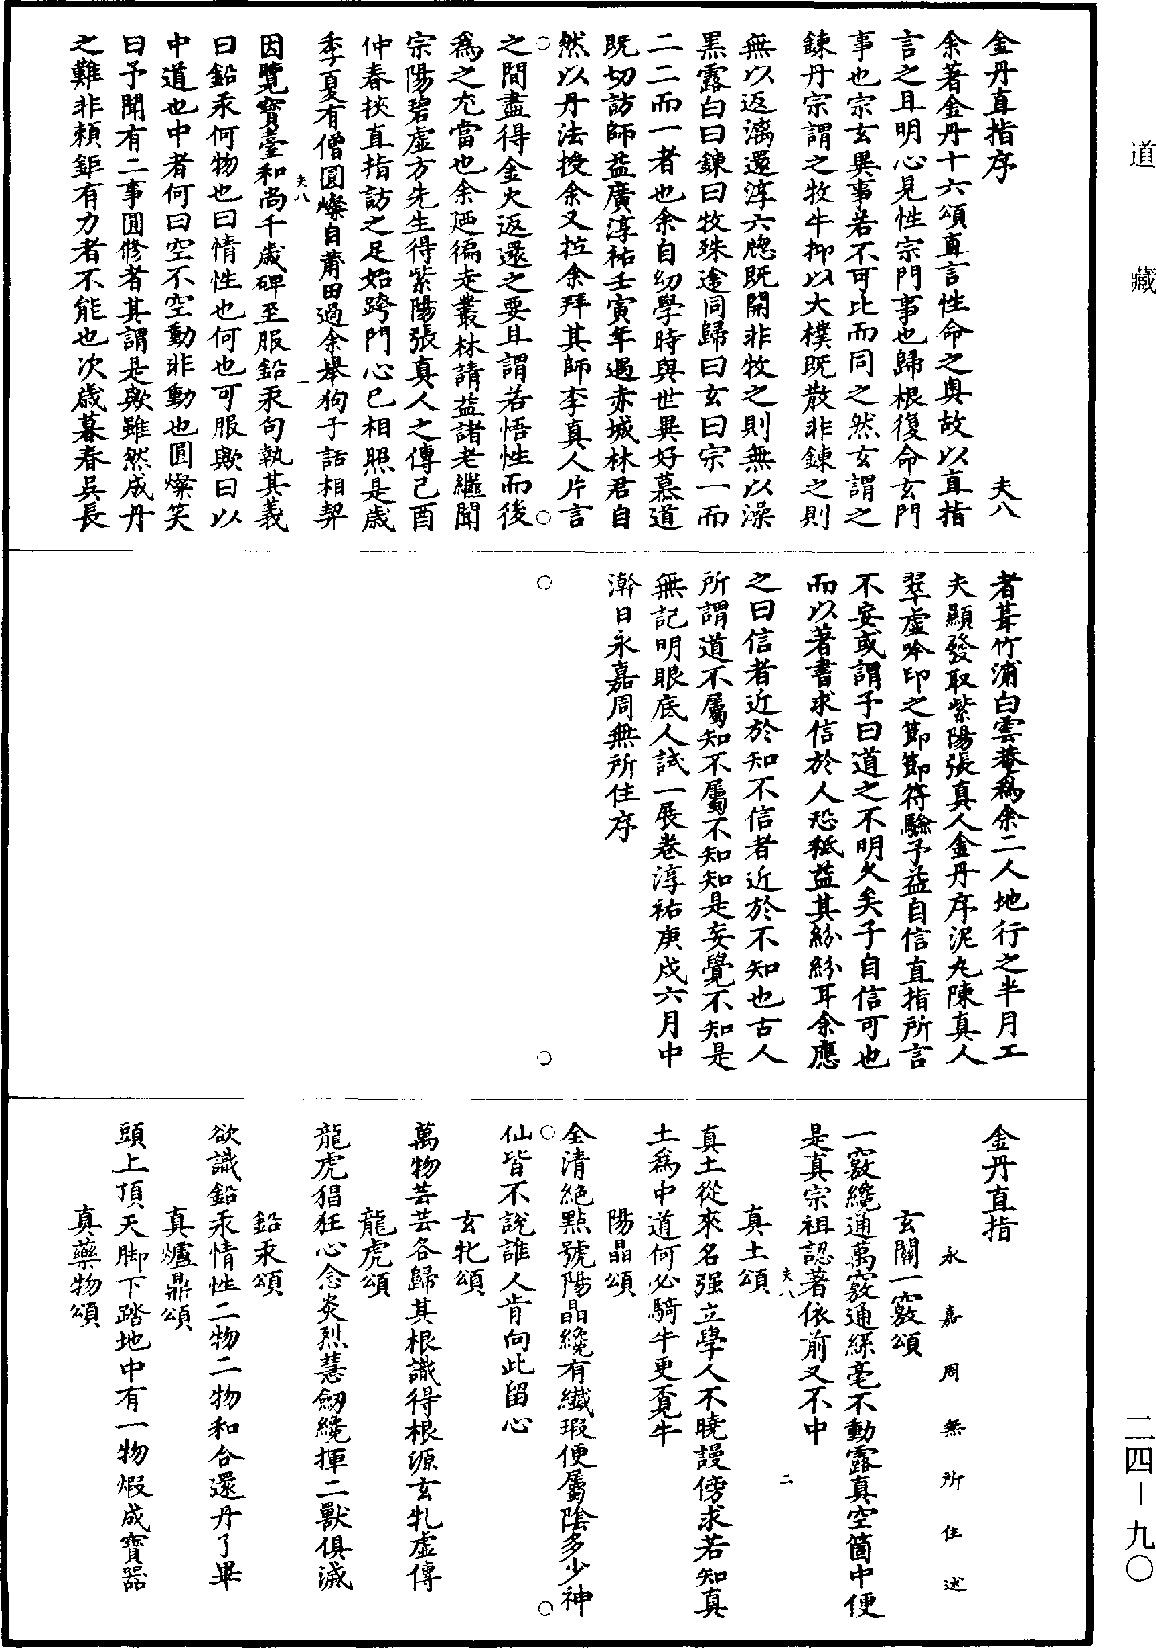 金丹直指序
夫八
余著金丹十六頌直言性命之奥故以直指
言之且明心見性宗門事也歸根復命玄門
事也宗玄異事若不可比而同之然玄謂之
錬丹宗謂之牧牛抑以大樸既散非錬之則
無以返漓還淳六牕既開非牧之則無以澡
黑露白曰錬曰牧殊途同歸曰玄曰宗一而
二二而一者也余自幼學時與世異好慕道
既切訪師益廣淳祐壬寅年遇赤城林君自
然以丹法授余又拉余拜其師李真人片言
之間盡得金火返還之要且謂若悟性而後
爲之尤當也余廼徧走叢林請益諸老繼聞
宗陽碧虚方先生得紫陽張真人之傳己酉
仲春挾直指訪之足始跨門心已相照是歳
季夏有僧圓燦自莆田過余舉狗子話相契
夫八
一
因覽寶臺和尚千歲碑至服鉛汞句執其義
曰鉛汞何物也曰情性也何也可服歟曰以
中道也中者何曰空不空動非動也圓燦笑
曰予聞有二事圓修者其謂是歟雖然成丹
之難非賴鉅有力者不能也次歳暮春吳長
者葺竹浦白雲菴爲余二人地行之半月工
夫顯發取紫陽張真人金丹序泥丸陳真人
翠虚吟印之節節符驗予益自信直指所言
不妄或謂予曰道之不明久矣子自信可也
而以著書求信於人恐秪益其紛紛耳余應
之曰信者近於知不信者近於不知也古人
所謂道不屬知不屬不知知是妄覺不知是
無記明眼底人試一展卷淳祐庚戌六月中
澣日永嘉周無所住序
金丹直指
永嘉周無所住述
玄關一竅頌
一竅纔通萬竅通絲毫不動露真空箇中便
是真宗祖認著依前又不中
夫八
二
真土頌
真土從來名强立學人不曉謾傍求若知真
土爲中道何必騎牛更覓牛
陽晶頌
全清絶點號陽晶纔有纖瑕便屬陰多少神
仙皆不說誰人肯向此留心
玄牝頌
萬物芸芸各歸其根識得根源玄牝虚傳
龍虎頌
龍虎猖狂心念炎烈慧劒纔揮二獸俱滅
鉛汞頌
欲識鉛汞情性二物二物和合還丹了畢
真爐鼎頌
頭上頂天脚下踏地中有一物煆成寶器
真藥物頌
道藏
二四－九〇